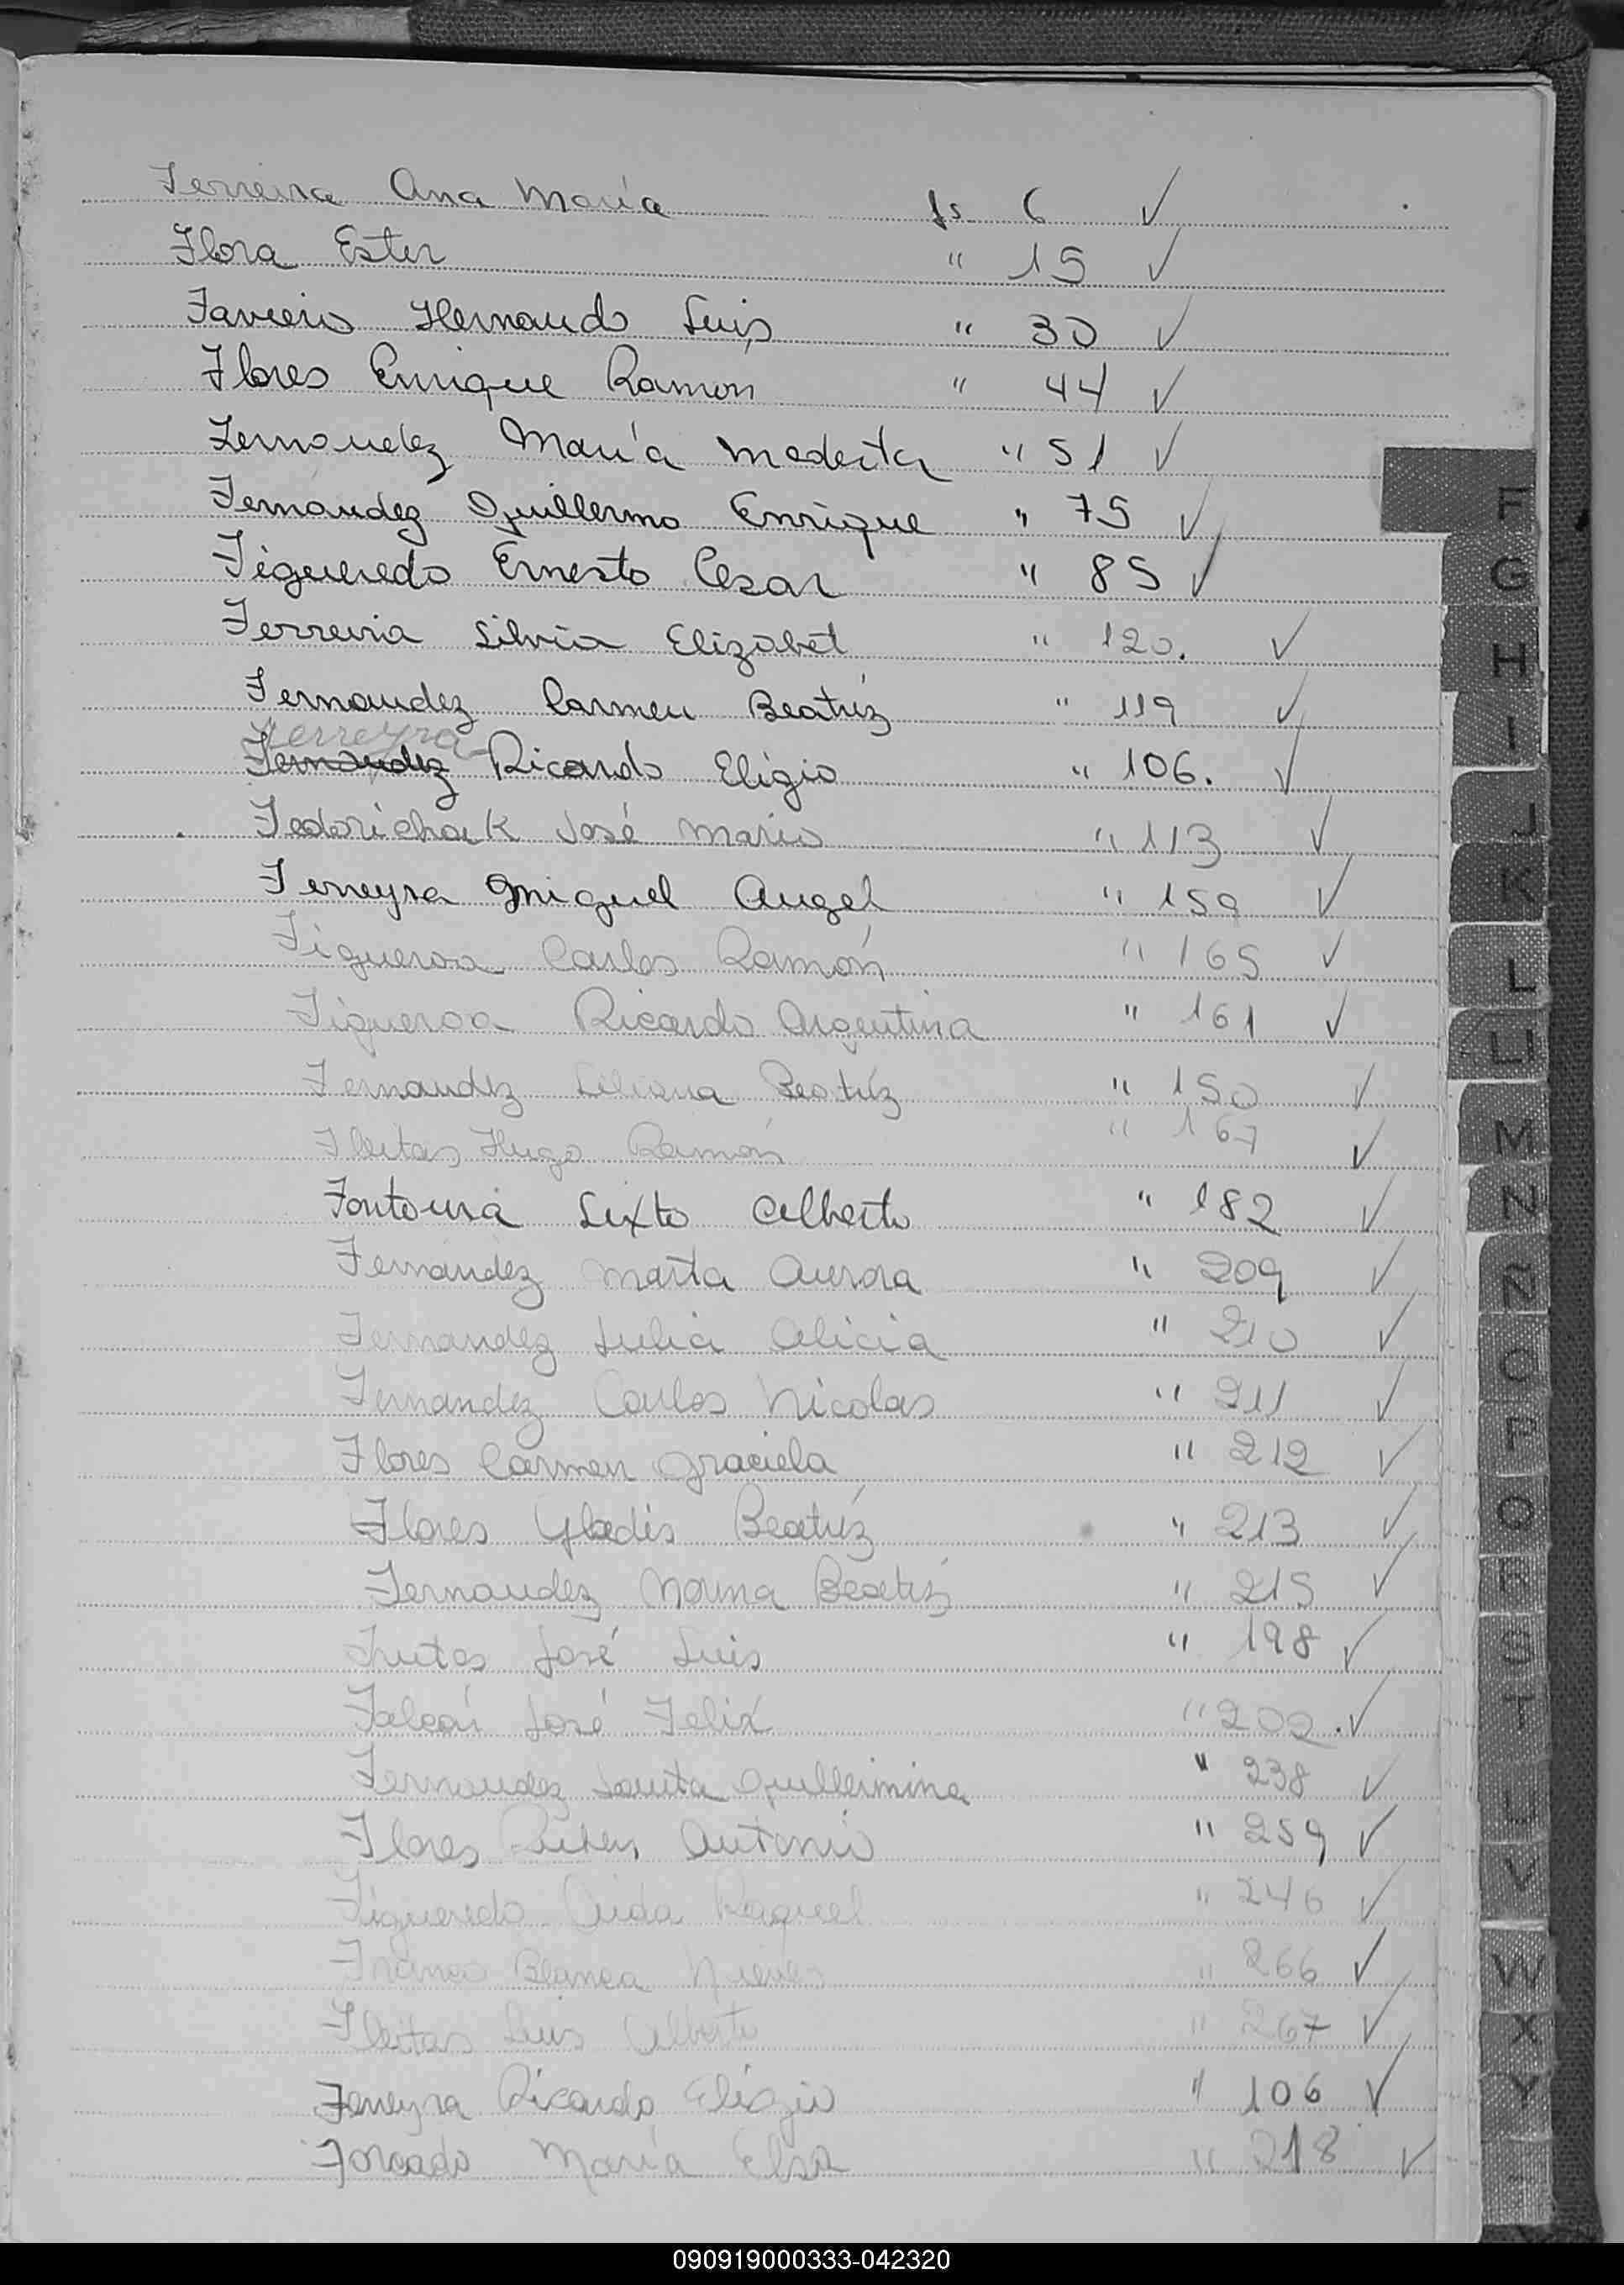 Ferreira Ana María fs 6 ✓
Flora Ester " 15 ✓
Favieris Hernando Luis " 30 ✓
Flores Enrique Ramón " 44 ✓
Fernandez María Modesta " 51 ✓
Fernández Guillermo Enrique " 75 ✓
Figueredo Ernesto Cesar " 85 ✓
Ferreira Silvia Elizabet " 120. ✓
Fernandez Carmen Beatríz " 119 ✓
Ferreyra
Fernandez Ricardo Eligio " 106. ✓
Fedorichak José Mario " 113 ✓
Ferreyra Miguel Angel " 159 ✓
Figueroa Carlos Ramón " 165 ✓
Figueroa Ricardo Argentina " 161 ✓
Fernandez Liliana Beatríz " 150 ✓
Fleitas Hugo Ramón " 167 ✓
Fontoura Sixto Alberto " 182 ✓
Fernández Marta Aurora " 209 ✓
Fernandez Julia Alicia " 210 ✓
Fernandez Carlos Nicolas " 211 ✓
Flores Carmen Graciela " 212 ✓
Flores Gladis Beatríz " 213 ✓
Fernandez Norma Beatríz " 215 ✓
Frutos José Luis " 198 ✓
Falcón José Felix " 202. ✓
Fernandez Guillermina " 238 ✓
Flores Ruben Antonio " 259 ✓
Figueredo Aida Raquel " 246 ✓
Franco Blanca Nieves " 266 ✓
Fleitas Luis Alberto " 267 ✓
Ferreyra Ricardo Eligio " 106 ✓
Forcado María Elsa " 218 ✓
F
G
H
I
J
K
L
Ll
M
N
Ñ
O
P
Q
R
S
T
U
V
W
X
Y
090919000333-042320